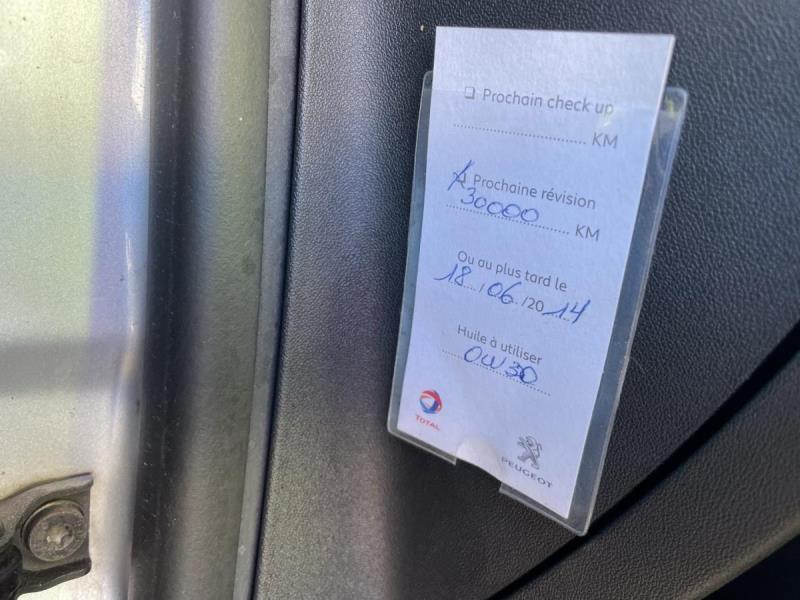 ❑ Prochain check up
.............................. KM
❑ Prochaine révision
30000 KM
Ou au plus tard le
18 / 06 /20 14
Huile à utiliser
0W30
TOTAL
PEUGEOT